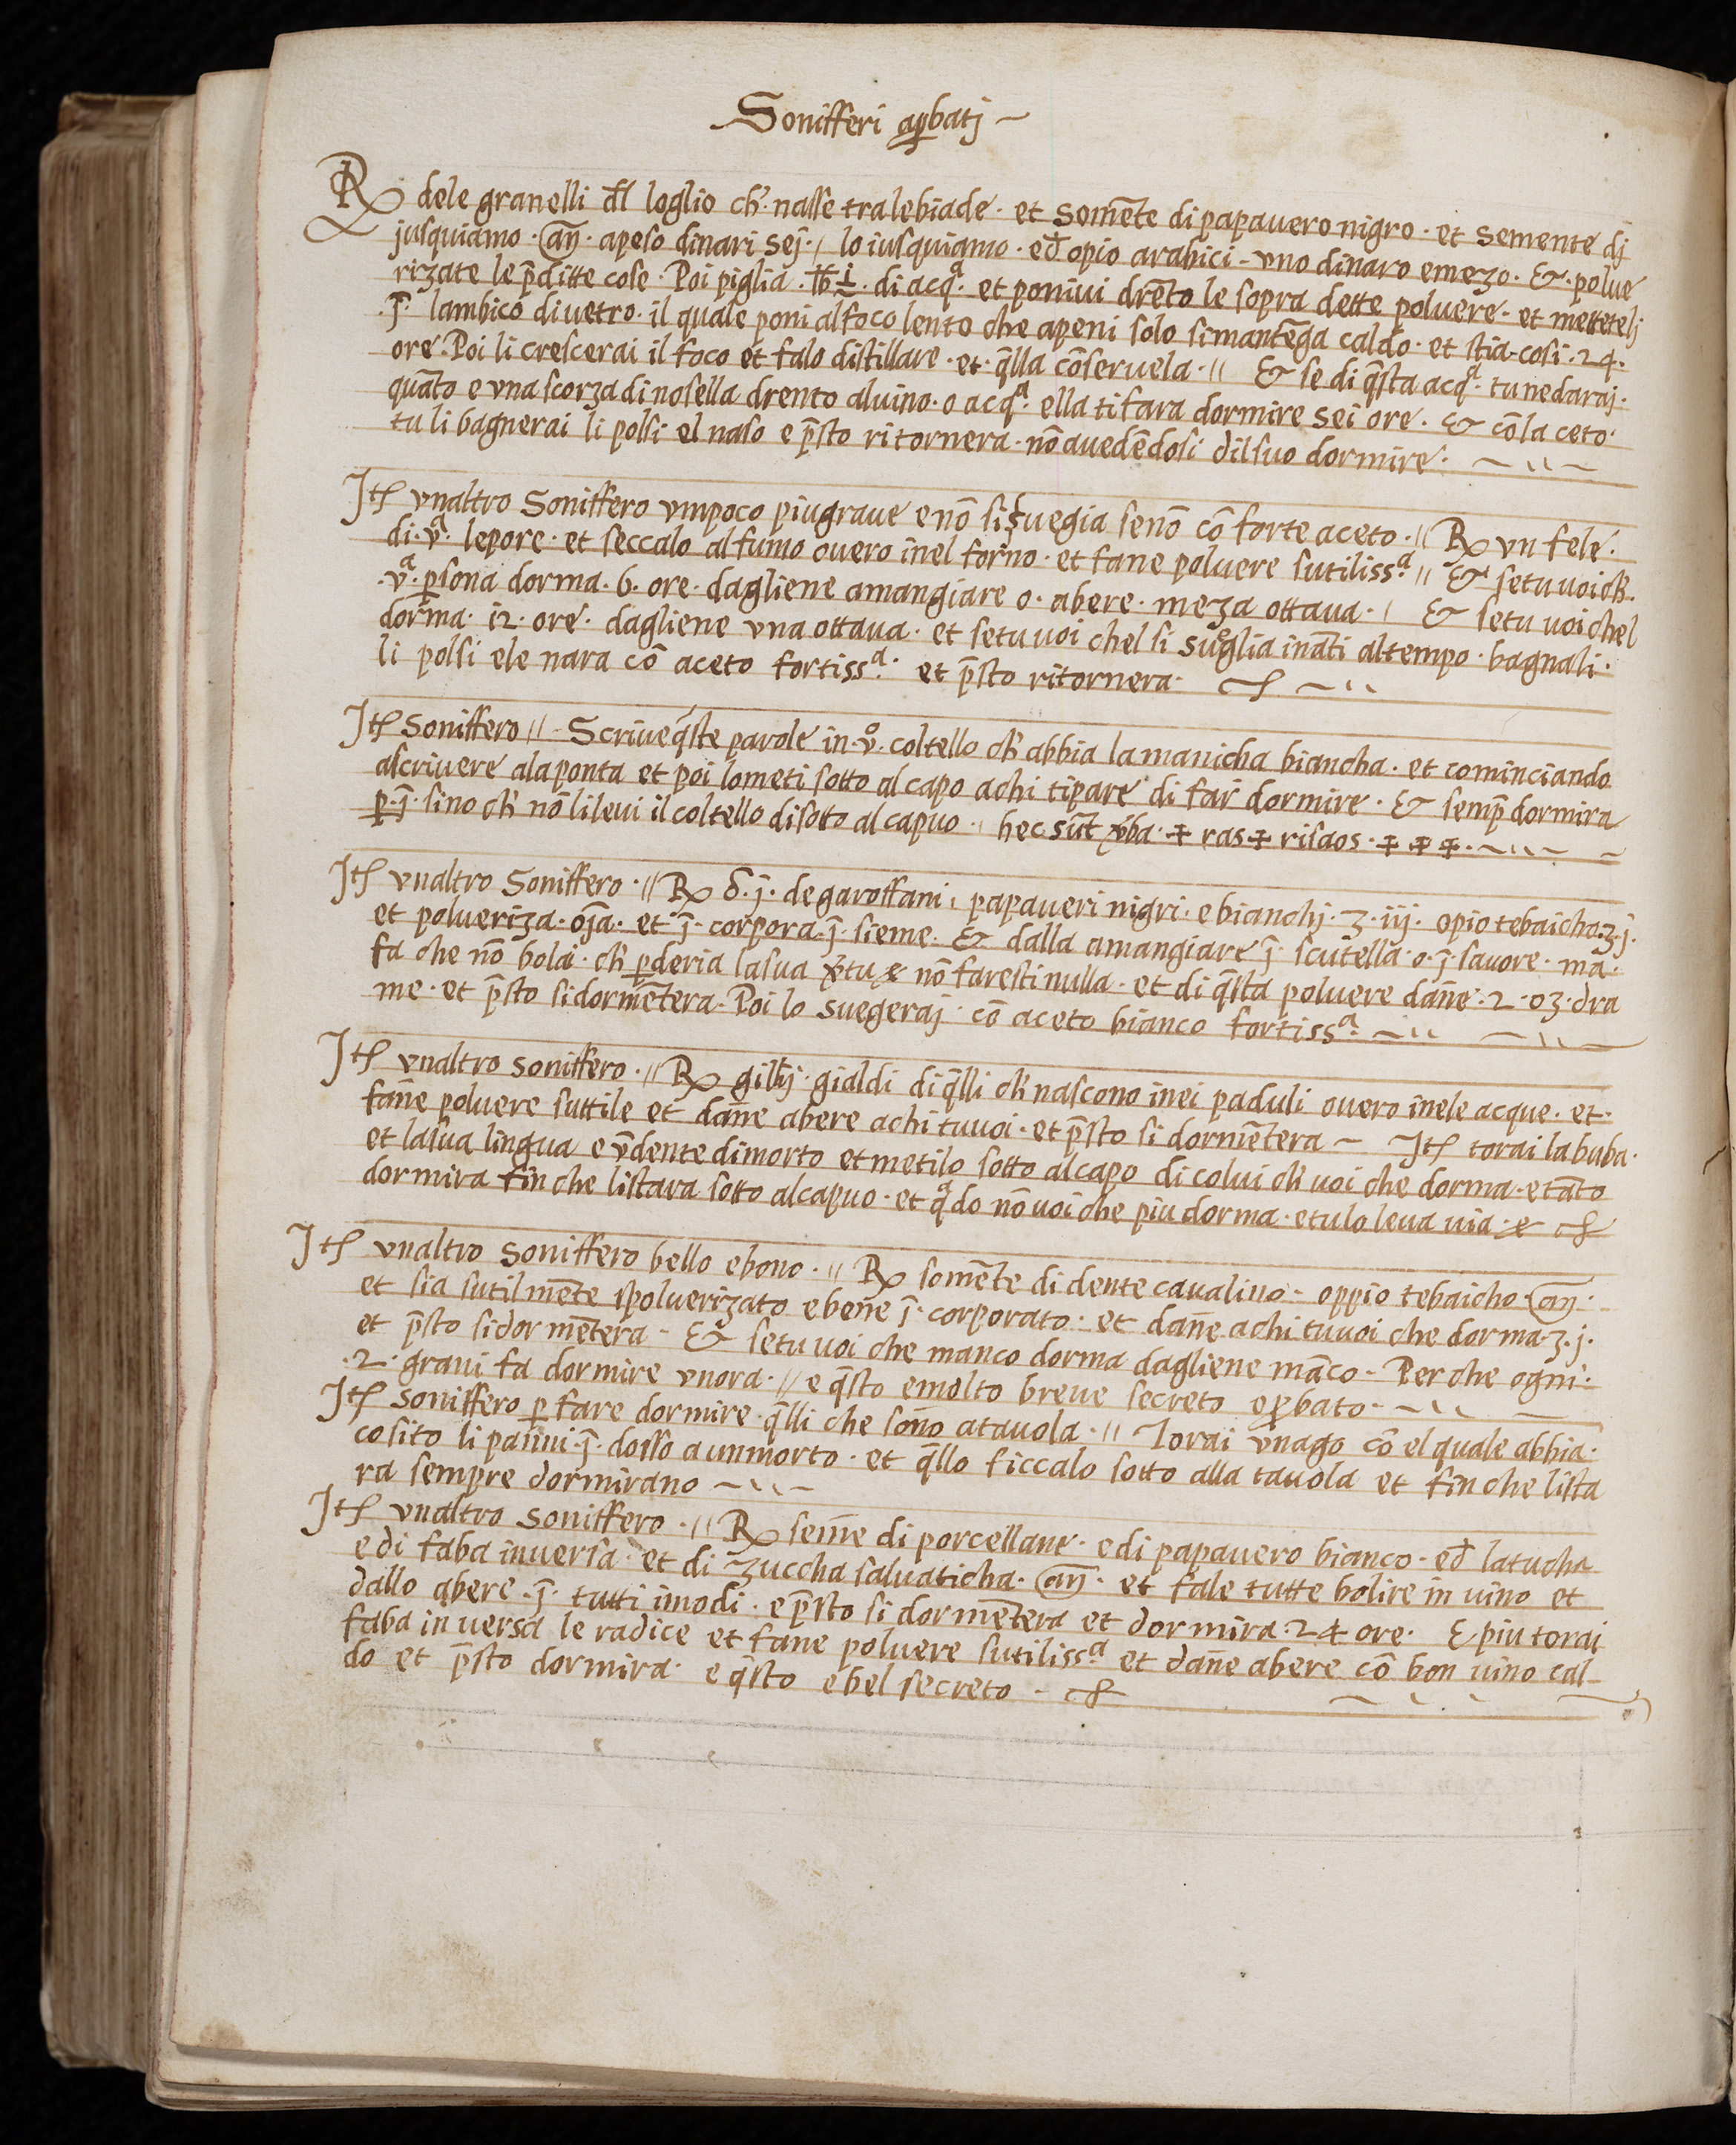 Soniferi aꝓbatj
℞ dele granelli d̄l loglio ch̄. nasse tra le biade · et somēte di papavero nigro · et semente dj
jusquiamo · an̄ · apeso dinari sej · // lo iusquiamo · ed̄ opio arabici - uno dinaro emezo · & · polve
rizate le p̄ditte cose · Poi piglia · ℔ i · di acqᵃ · et ponivi drēto le sopra dette polvere · et mettetelj
·j̄· lambico di vetro · il quale poni al foco lento che apeni solo si mantēga caldo · et stia cosi · 24 ·
ore · Poi li crescerai il foco et falo distillare · et · q̄lla cōservela · // & se di q̄sta acqᵃ · tu ne daraj ·
quāto e una scorza di nosella drento al vino · o acqᵃ · ella ti fara dormire sei ore · & cō la ceto ·
tu li bagnerai li polsi el naso e p̄sto ritornera · nō avedēdosi dil suo dormire ·
Itē unaltro Soniffero umpoco piu grave e nō si svegia se nō cō forte aceto · // ℞ un fele ·
di · vᵃ · lepore · et seccalo al fumo overo inel forno · et fane polvere sutilissᵃ · // & se tu voi ch̄ ·
·vᵃ· ꝑsona dorma · 6 · ore · dagliene amangiare o · abere · meza ottava · / & se tu voi chel
dorma · 12 · ore · dagliene una ottava · et se tu voi chel si sveglia ināti al tempo · bagnali ·
li polsi ele nara cō aceto fortissᵃ · et p̄sto ritornera ·
Itē Soniffero // Scrive q̄ste parole in · vᵒ · coltello ch̄ abbia la manicha biancha · et cominciando
ascrivere ala ponta et poi lo meti sotto al capo achi ti pare di far dormire · & semp̄ dormira
ꝑ · j̄ · sino ch̄ nō li levi il coltello di sotto al capuo · // hec sūt v̄ba · ‡ ras ‡ risaos · ‡ ‡ ‡ ·
Itē unaltro Soniffero · // ℞ ẟ · j · de garoffani, papaveri nigri · e bianchj · ʒ · iij · opio tebaicho · ʒ · j ·
et polveriza · oj̄a · et j̄ · corpora · j̄ · sieme · & dalla amangiare j̄ · scutella · o · j̄ · savore · ma ·
fa che nō bola · ch̄ ꝑderia la sua v̄tu & nō faresti nulla · et di q̄sta polvere dāne · 2 · o 3 · dra
me · et p̄sto si dormētera · Poi lo svegeraj · cō aceto bianco fortissᵃ
Itē unaltro soniffero · // ℞ gilhj gialdi di q̄lli ch̄ nascono inei paduli overo inele acque · et ·
fāne polvere suttile et dāne abere achi tu voi · et p̄sto si dormētera ~ Itē torai la buba ·
et la sua lingua e v̄ dente di morto et metilo sotto al capo di colui ch̄ voi che dorma · e tāto
dormira fin che li stara sotto al capuo · et qᵃdo nō voi che piu dorma · e tu lo leva via · &
Itē unaltro soniffero bello e bono · // ℞ somēte di dente cavalino · oppio tebaicho an̄ ·
et sia sutilmēte spolverizato e bene j̄ · corporato · et dāne achi tu voi che dorma · ʒ · j ·
et p̄sto si dormētera · & se tu voi che manco dorma dagliene māco · Perche ogni ·
·2· grani fa dormire unora · // e q̄sto e molto breve secreto e ꝓbato ·
Itē soniffero ꝑ fare dormire · q̄lli che sono a tavola · // Torai unago cō el quale abbia ·
cosito li panni · j̄ · dosso a un morto · et q̄llo ficcalo sotto alla tavola et fin che li sta
ra sempre dormirano
Itē unaltro soniffero · // ℞ seme di porcellane · e di papavero bianco · ed̄ latucha
e di faba inversa · et di zuccha salvaticha · an̄ · et fale tutte bolire in vino et
dallo abere · j̄ · tutti imodi · e p̄sto si dormētera et dormira · 24 ore · E piu torai
faba inversa le radice et fane polvere sutilissᵃ et dāne abere cō bon vino cal-
do et p̄sto dormira · e q̄sto e bel secreto ·